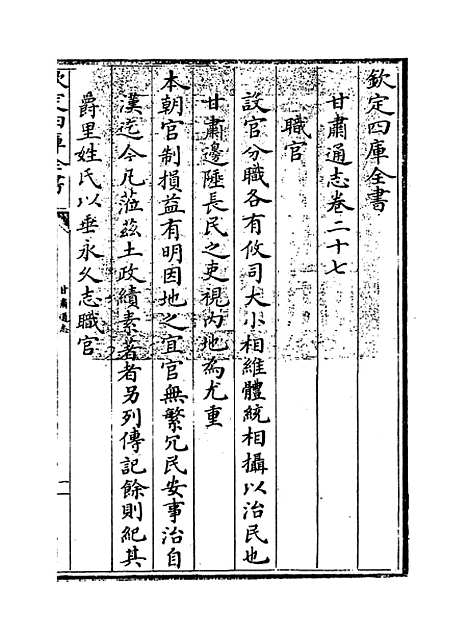 欽定四庫全書
甘肅通志卷二十七
職官
設官分職各有攸司大小相維體統相攝以治民也
甘肅邊陲長民之吏視內地為尤重
本朝官制損益有明因地之宜官無繁冗民安事治自
漢迄今凡蒞兹土政績素著者另列傳記餘則紀其
爵里姓氏以垂永久志職官
欽定四庫全書
甘肅通志